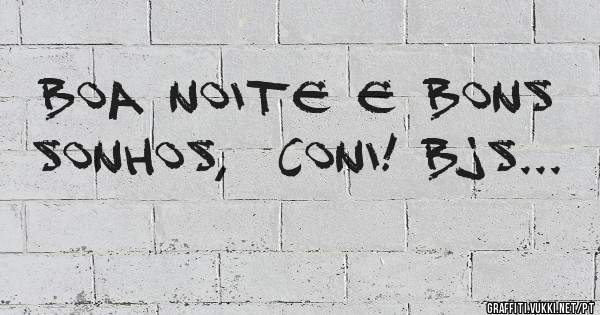 BOA NOITE E BONS
SONHOS, CONI! BJS...
GRAFFITI.VUKKI.NET/PT